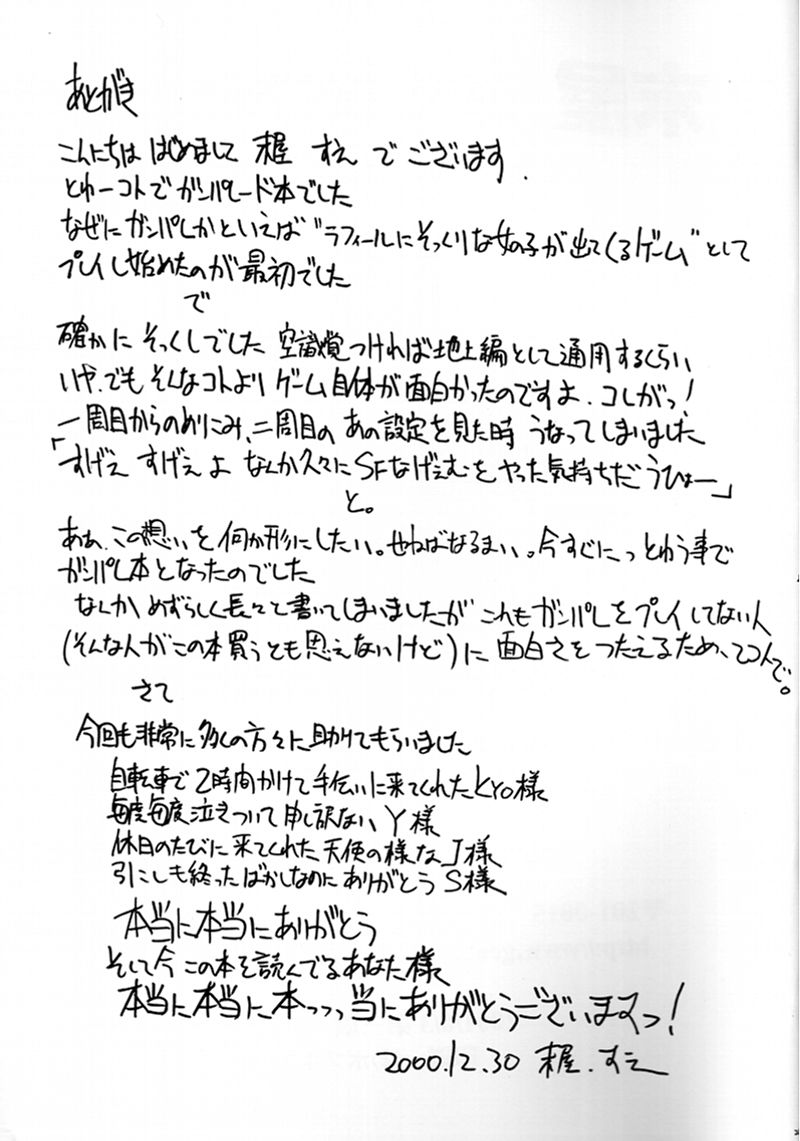 あとがき
こんにちは はじめまして 屋 すえ でございます.
とゆーコトで ガンパレード本でした
なぜにガンパレかといえば "ラフィールにそっくりな女の子が出てくるゲーム" として
プレイし始めたのが最初でした
で
確かに そっくしでした 空識覚つければ地上編として通用するくらい
いや、でも そんなコトより ゲーム自体が面白かったのですよ、コレがっ!
一周目からのめりこみ、二周目の あの設定を見た時 うなってしまいました
「すげぇ すげぇよ なんか久々に SFなげぇむをやった気持ちだ うひょー」
と。
ああ、この想いを 何か形にしたい。せねばなるまい。今すぐにっ とゆう事で
ガンパレ本となったのでした
なんか めずらしく長々と書いてしまいましたが これもガンパレをプレイしてない人
(そんな人がこの本買うとも思えないけど)に 面白さを つたえるため、ってコトで。
さて
今回も非常に多くの方々に助けてもらいました
自転車で 2時間かけて手伝いに来てくれた Kyo様
毎度毎度泣きついて申し訳ない Y様
休日のたびに来てくれた 天使の様な J様
引こしも終ったばかしなのに ありがとう S様
本当に本当にありがとう
そして今 この本を読んでるあなた様
本当に本当に本っっっ当にありがとうございますっ!
2000.12.30 屋.すえ